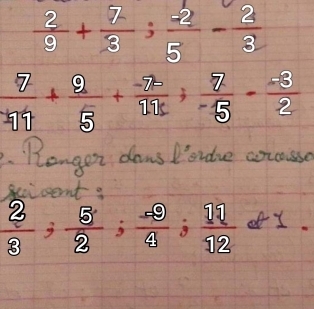 2/9 + 7/3 ; -2/5 - 2/3
7/11 + 9/5 + 7-/11 ; 7/5 - -3/2
- Ranger dans l'ordre croissa
suivant :
2/3 ; 5/2 ; -9/4 ; 11/12 et 1.